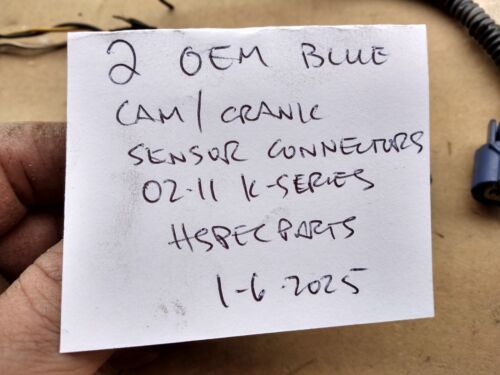 2 OEM BLUE
CAM/CRANK
SENSOR CONNECTORS
02-11 K-SERIES
HSPECPARTS
1-6-2025